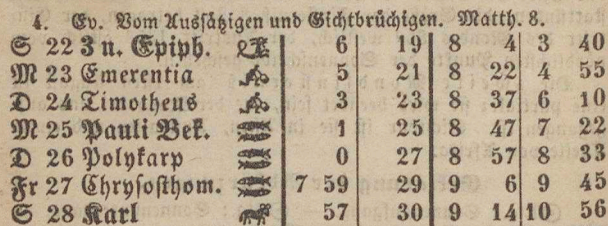 4. Ev. Vom Aussätzigen und Gichtbrüchigen. Matth. 8.
S 22 3 n. Epiph. 6 19 8 4 3 40
M 23 Emerentia 5 21 8 22 4 55
D 24 Timotheus 3 23 8 37 6 10
M 25 Pauli Bek. 1 25 8 47 7 22
D 26 Polykarp 0 27 8 57 8 33
Fr 27 Chrysosthom. 7 59 29 9 6 9 45
S 28 Karl 57 30 9 14 10 56